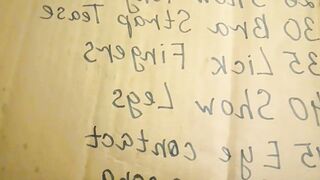 30 Bra Strap Tease
35 Lick Fingers
40 Show Legs
45 Eye contact